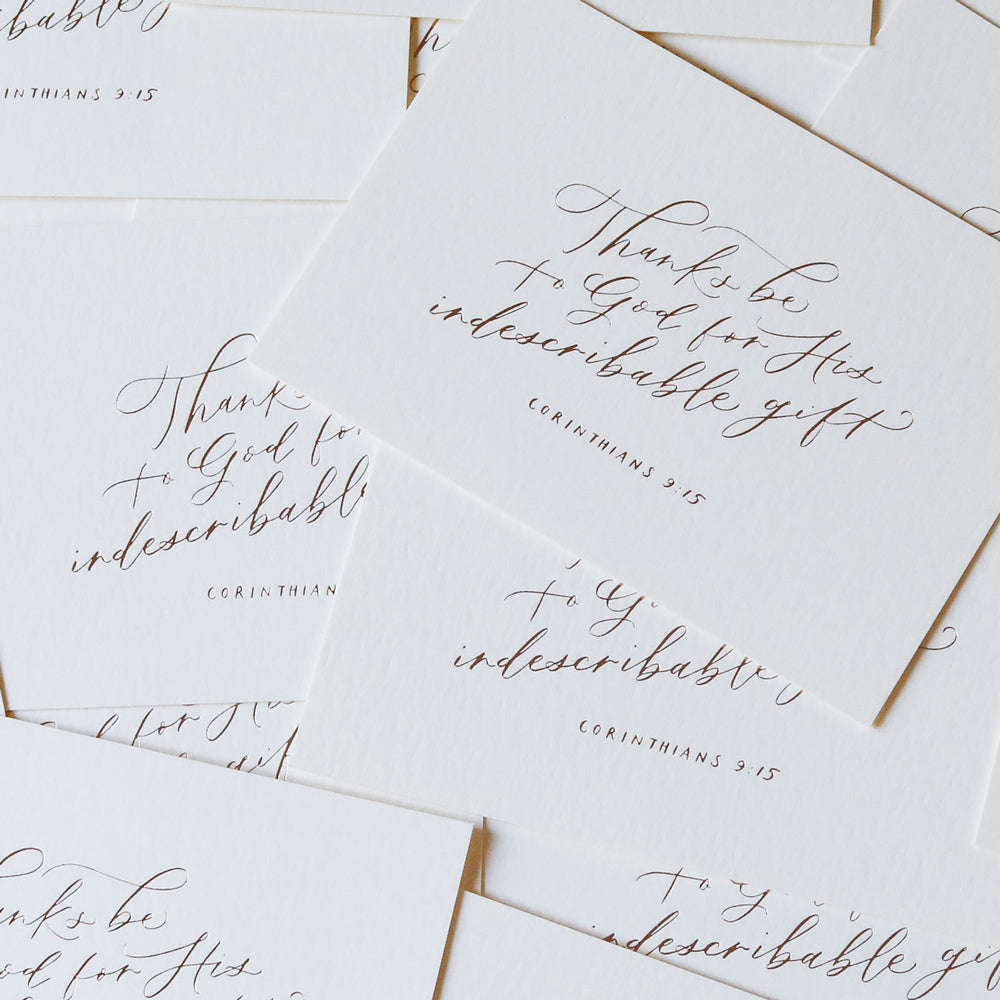 ibable
INTHIANS 9:15
Thanks be
to God for His
indescribable gift
CORINTHIANS 9:15
Thank
to God for
indescribable
CORINTHIAN
to G
indescribable
CORINTHIANS 9:15
for His
gift
to G
indescribable gif
anks be
od for His